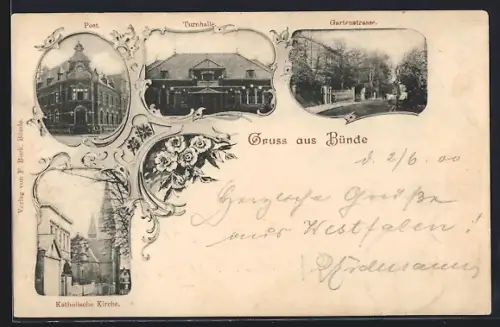 Post.
Turnhalle.
Gartenstrasse.
Gruss aus Bünde
d. 2/6. 00
Herzliche Grüße
aus Westfalen!
Katholische Kirche.
Verlag von F. Buck, Bünde.